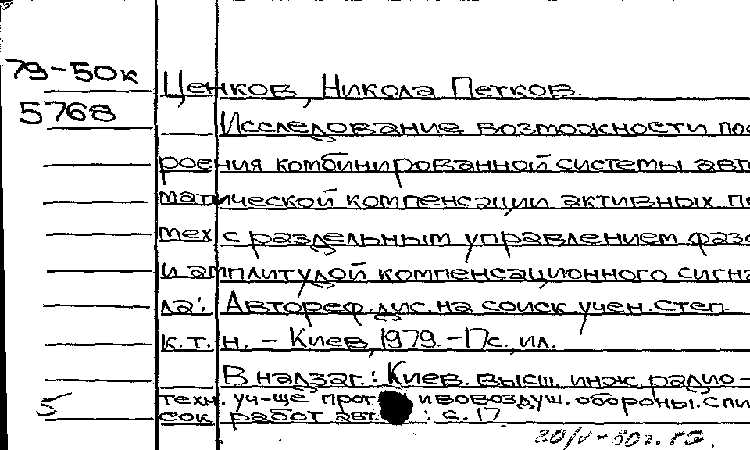 79-50к
5768
Ценков, Никола Петков
Исследование возможности пос
роения комбинированной системы авт
матической компенсации активных по
мех с раздельным управлением фазо
и амплитудой компенсационного сигна
ла: Автореф. дис. на соиск. учен. степ.
к.т.н. - Киев, 1979. - 17с., ил.
В надзаг.: Киев. высш. инж. радио-
техн. уч-ще прот ивовоздуш. обороны. Спи
сок работ авт : с. 17
5